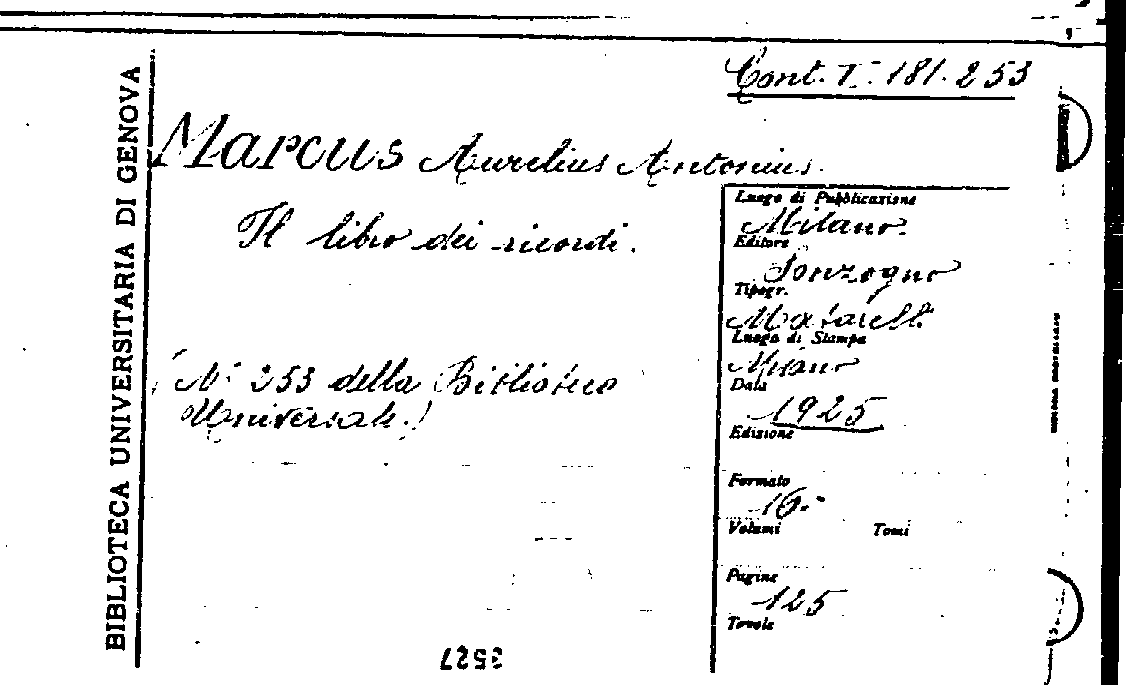 Cont. T. 181.253
BIBLIOTECA UNIVERSITARIA DI GENOVA
Marcus Aurelius Antonius.
Il libro dei ricordi.
(N° 253 della Biblioteca
Universale.)
Luogo di Pubblicazione
Milano.
Editore
Sonzogno
Tipogr.
Matarelli
Luogo di Stampa
Milano
Data
1925
Edizione
Formato
16°
Volumi Tomi
Pagine
125
Tavole
3527